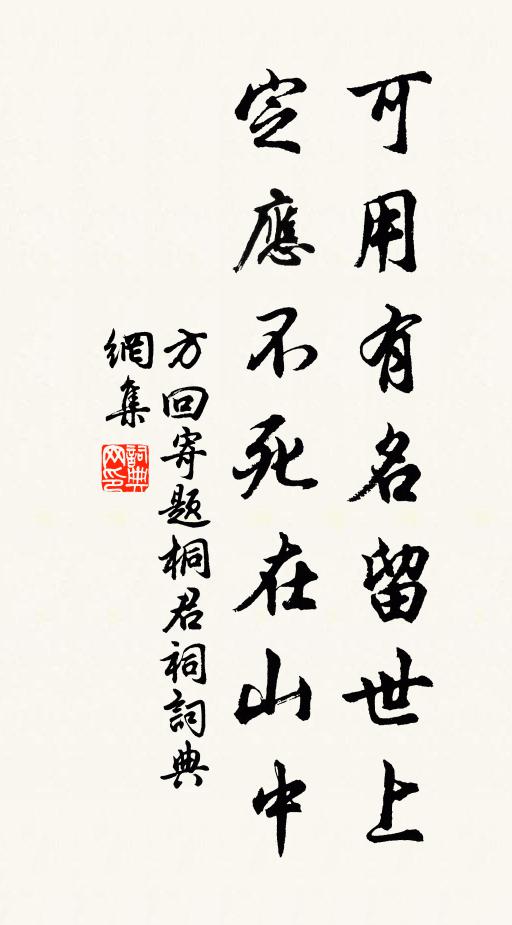 可用有名留世上
定應不死在山中
方回寄題桐君祠詞典
網集
詞典網印